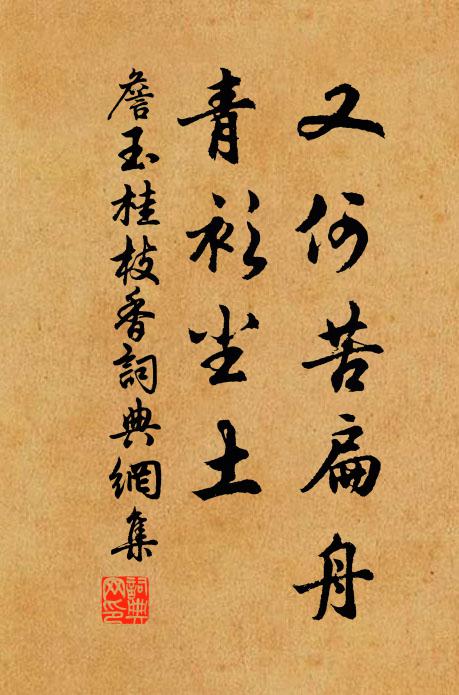 又何苦扁舟
青衫尘土
詹玉桂枝香詞典網集
詞典網印